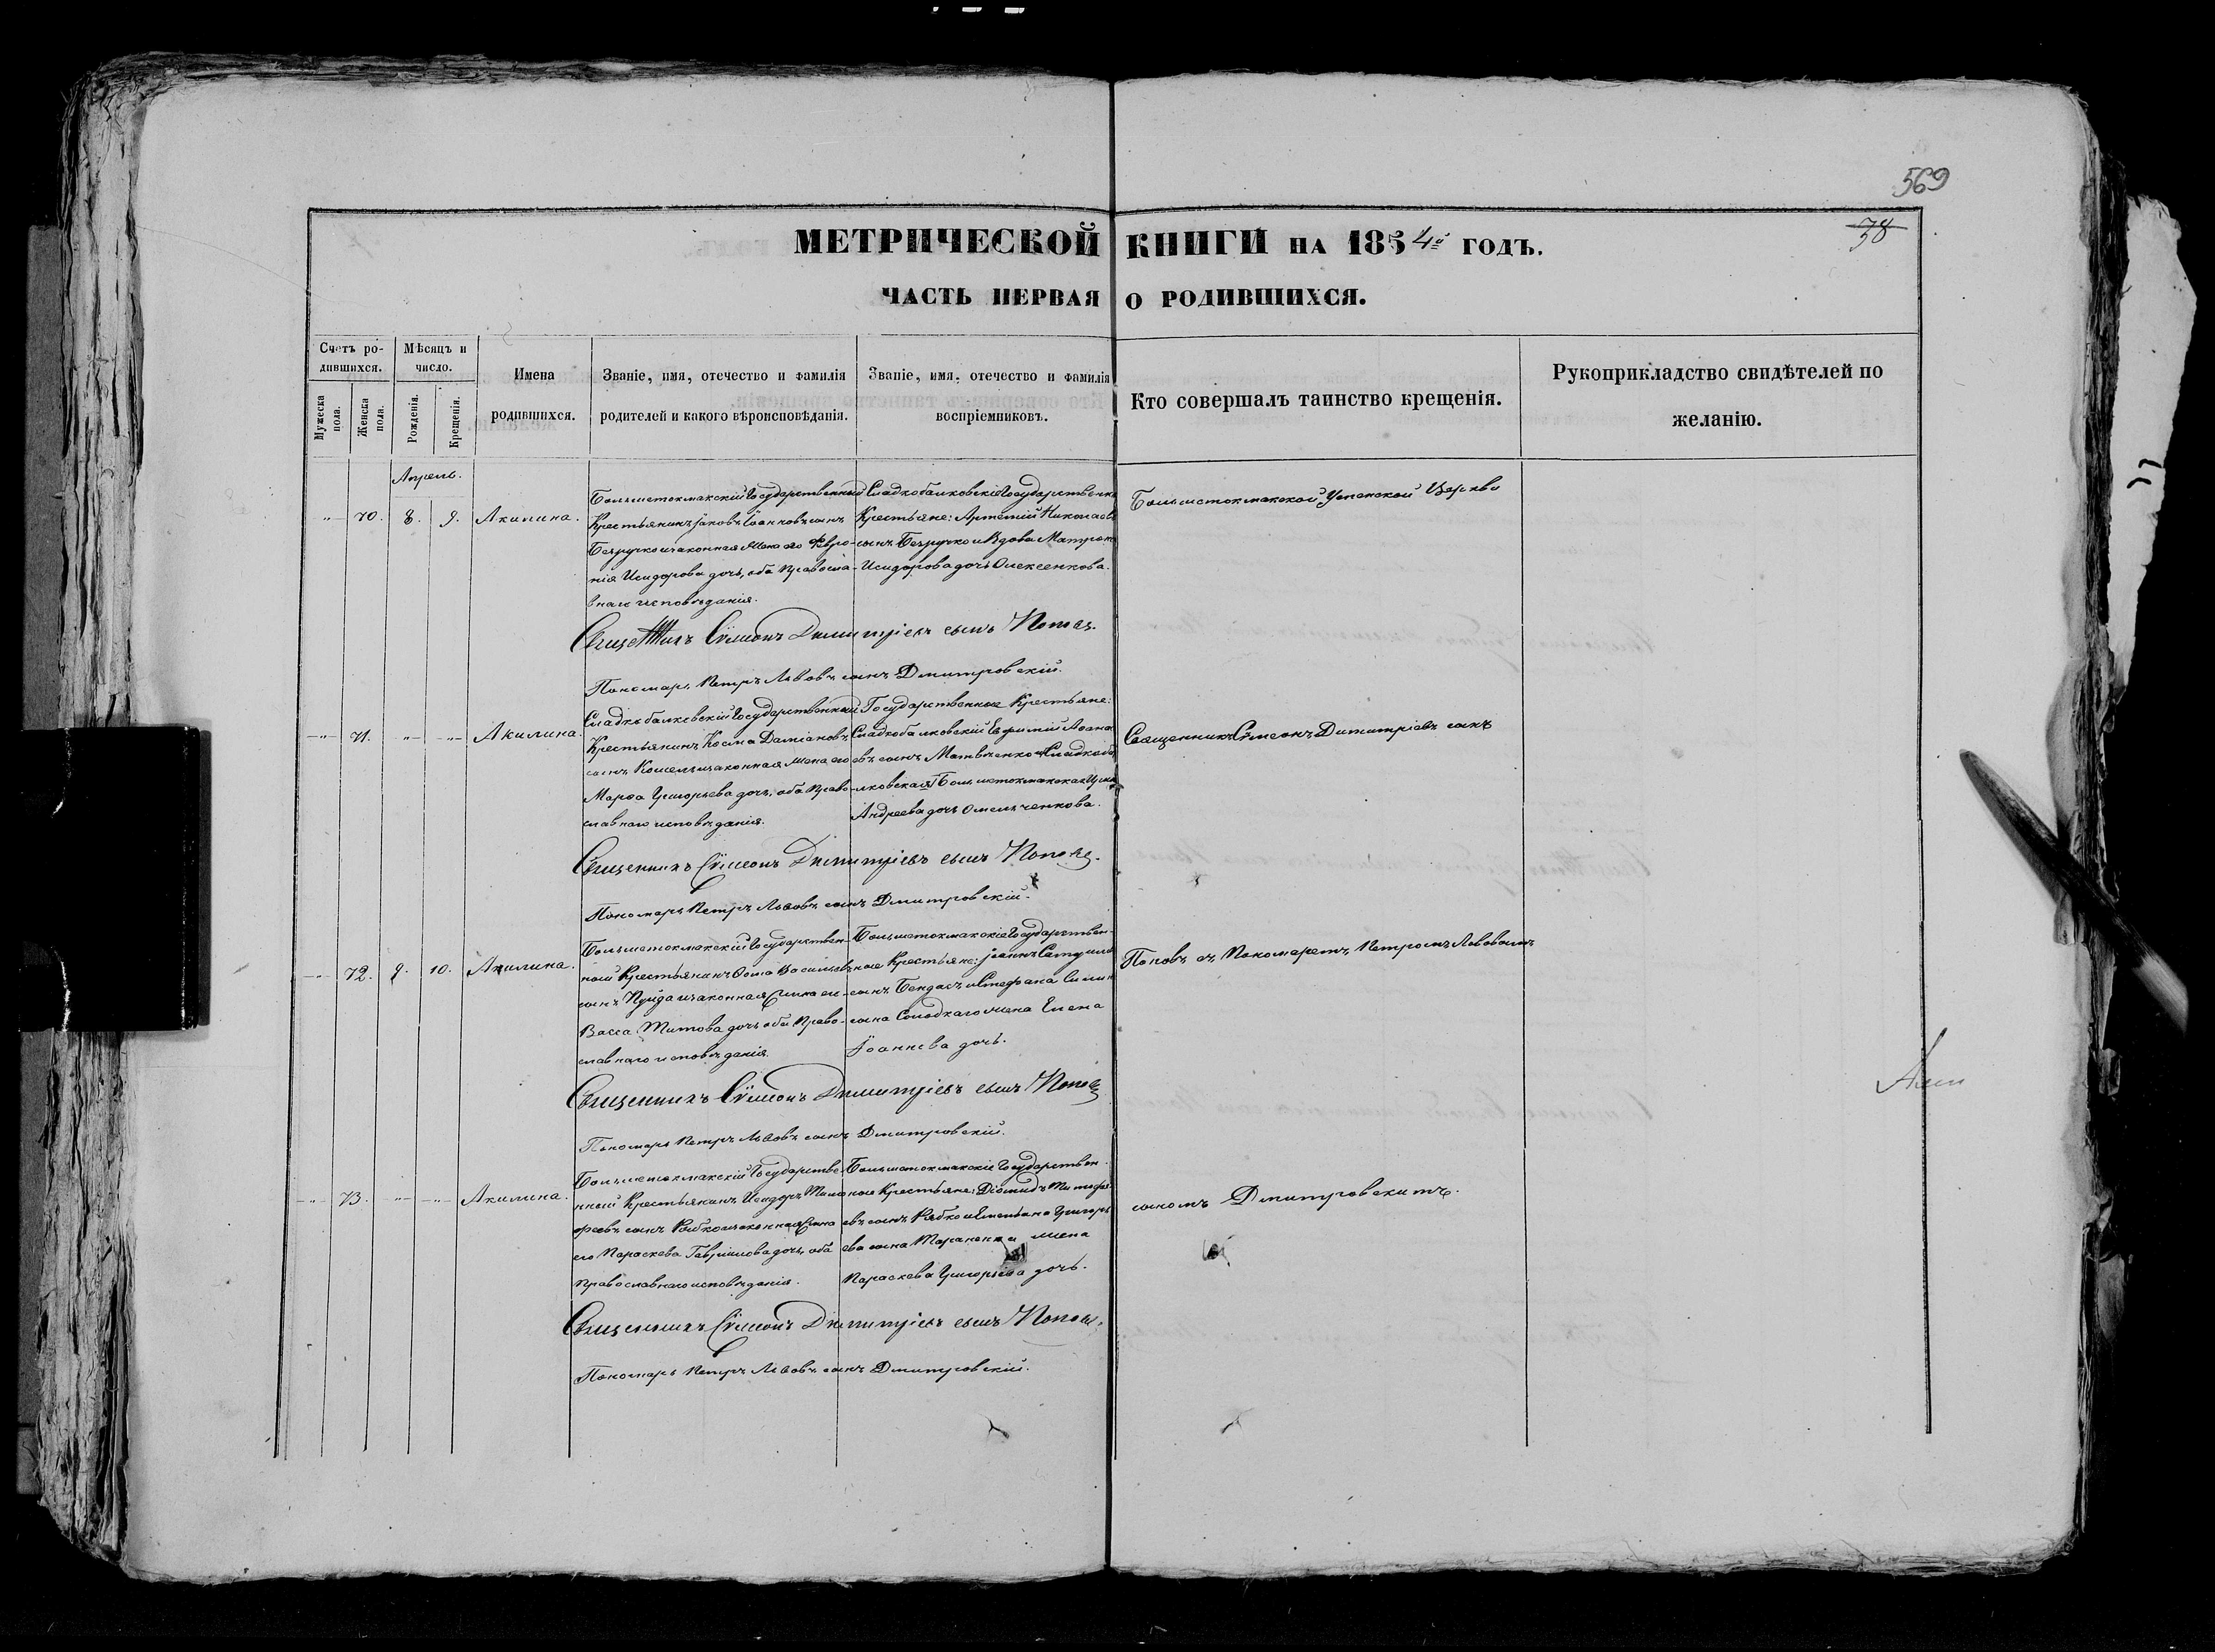 569
38
МЕТРИЧЕСКОЙ КНИГИ НА 1854й ГОДЪ.
ЧАСТЬ ПЕРВАЯ О РОДИВШИХСЯ.
Счетъ ро-
дившихся.
Мужеска пола.
Женска пола.
Мѣсяцъ и
число.
Рожденія.
Крещенія.
Имена
родившихся.
Званіе, имя, отечество и фамилія
родителей и какого вѣроисповѣданія.
Званіе, имя, отечество и фамилія
воспріемниковъ.
Кто совершалъ таинство крещенія.
Рукоприкладство свидѣтелей по
желанію.
Апрель.
70. 8. 9. Акилина.
Большетокмакскій Государственный
Крестьянинъ Іаковъ Іоанновъ сынъ
Безручко и законная жена его Февро-
нія Исидорова дочь, оба Правосла-
внаго исповѣданія.
Сладкобалковскіе Государственн
Крестьяне: Артемій Николаевъ
сынъ Безручко и Вдова Матрон
Исидорова дочь Олексенкова.
Большетокмакской Успенской Церкви
Священникъ Сѵмеонъ Димитріевъ сынъ Поповъ.
Пономарь Петръ Львовъ сынъ Дмитровскій.
71. Акилина.
Сладкобалковскій Государственный
Крестьянинъ Косма Даміановъ
сынъ Кошель и законная жена его
Марфа Григорьева дочь, оба Право-
славнаго исповѣданія.
Государственные Крестьяне:
Сладкобалковскій Ефимій Афанас
евъ сынъ Матвѣенко и
Большетокмакская
Андреева дочь Омельченкова.
Священникъ Сѵмеонъ Димитріевъ сынъ
Священникъ Сѵмеонъ Димитріевъ сынъ Поповъ.
Пономарь Петръ Львовъ сынъ Дмитровскій.
72. 9. 10. Акилина.
Большетокмакскій Государствен-
ный Крестьянинъ Ѳома Васильевъ
сынъ и законная жена его
Васса Титова дочь оба Право-
славнаго исповѣданія.
Большетокмакскіе Государствен-
ные Крестьяне: Іоаннъ
сынъ Бендасъ и Стефана Симин
сына Солодкаго жена Елена
Іоаннова дочь.
Поповъ съ Пономаремъ Петромъ Львовымъ
Священникъ Сѵмеонъ Димитріевъ сынъ Поповъ
Пономарь Петръ Львовъ сынъ Дмитровскій.
73. Акилина.
Большетокмакскій Государстве
нный Крестьянинъ Исидоръ Тимо
феевъ сынъ Рябко и законная жена
его Параскева Гавріилова дочь, оба
Православнаго исповѣданія.
Большетокмакскіе Государствен
ные Крестьяне: Діомидъ Тимофе
евъ сынъ Рябко и Емельяна Григорь
ева сына Тараненка жена
Параскева Григорьева дочь.
сыномъ Дмитровскимъ.
Священникъ Сѵмеонъ Димитріевъ сынъ Поповъ.
Пономарь Петръ Львовъ сынъ Дмитровскій.